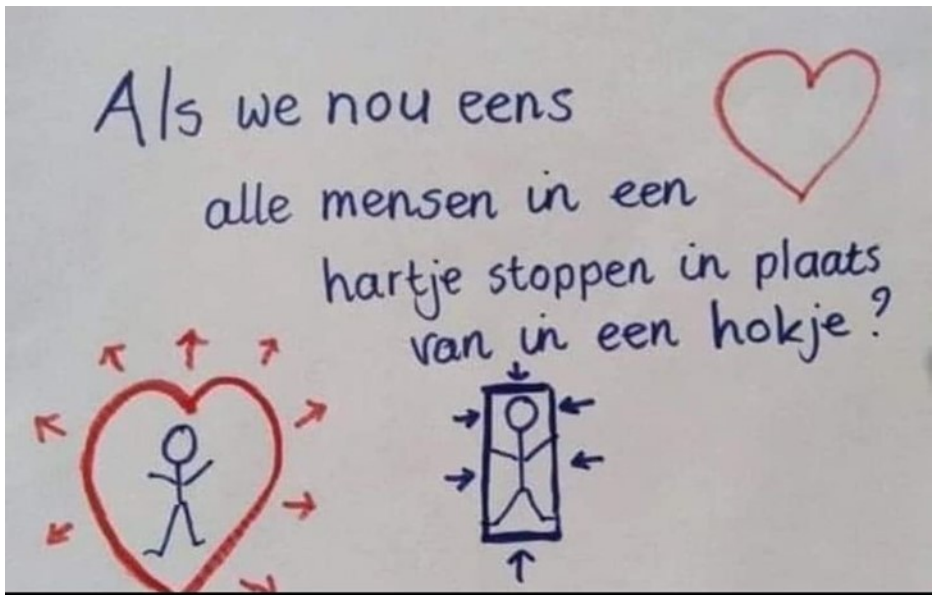 Als we nou eens
alle mensen in een
hartje stoppen in plaats
van in een hokje?